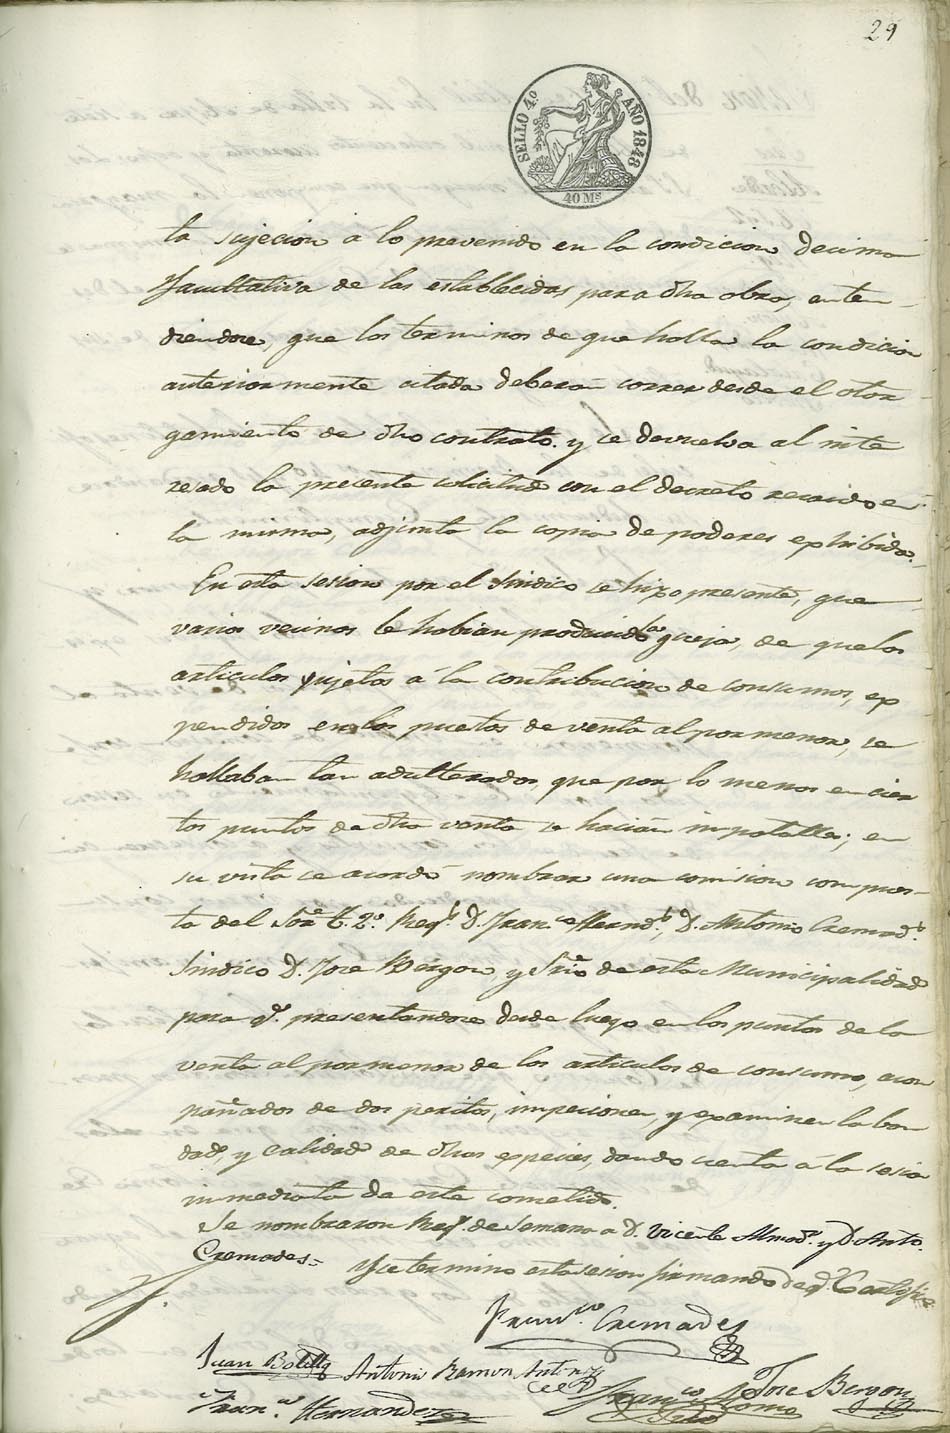 29
SELLO 4º AÑO 1848
40 Ms
ta sujecion á lo prevenido en la condicion decima
facultativa de las establecidas para dha obra, enten-
diendose, que los terminos de que habla la condicion
anteriormente citada deberan correr desde el otor-
gamiento de dho contrato. y se devuelva al inte
resado la presente solicitud con el decreto recaido en
la misma, adjunta la copia de poderes exhibida.
En esta sesion por el Sindico se hizo presente, que
varios vecinos le habian producido la queja, de que los
articulos sujetos á la contribucion de consumos, ex
pendidos en los puestos de venta al por menor, se
hallaban tan adulterados, que por lo menos en cier
tos puntos de dha venta se hacian impotable; en
su vista se acordó nombrar una comision compues-
ta del Sor. T. 2º. Regs. D. Franco. Hernds., D. Antonio Cremads.
Sindico D. Jose Bergon, y Srio de esta Municipalidad
para q. presentandose desde luego en los puntos de la
venta al por menor de los articulos de consumo, acom
pañados de dos peritos, inspecionen, y examinen la bon
dad, y calidad de dhas especies, dando cuenta á la sesion
inmediata de este cometido.
Se nombraron Regs. de Semana a D. Vicente Almods. y D. Anto.
Cremades.- Y se termino esta sesion firmando de q. Certifico
Franco. Cremades
Juan Botella Antonio Ramon Jose Bergon
Franco Hernandez Franco
Srio